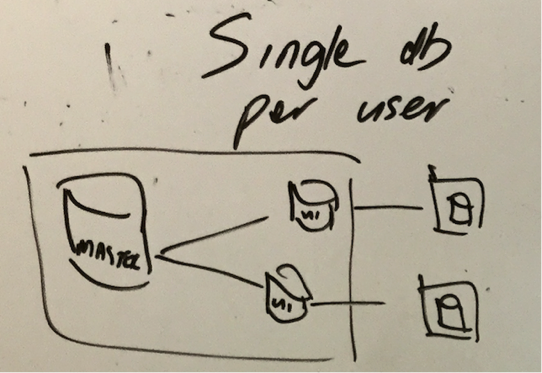 Single db
per user
MASTER
U1
U1